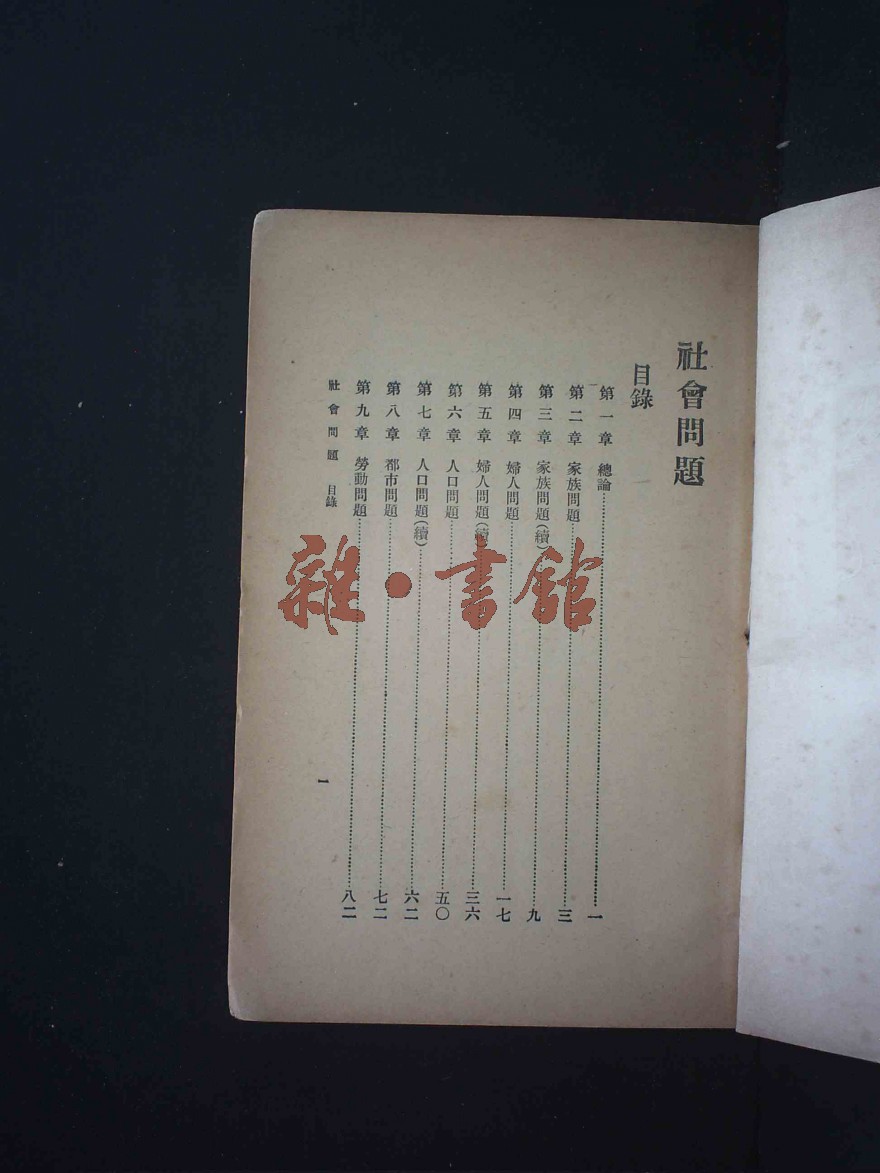 社會問題
目錄
第一章 總論……一
第二章 家族問題……三
第三章 家族問題(續)……九
第四章 婦人問題……一七
第五章 婦人問題(續)……三六
第六章 人口問題……五〇
第七章 人口問題(續)……六二
第八章 都市問題……七二
第九章 勞動問題……八二
社會問題 目錄
一
雜·書館